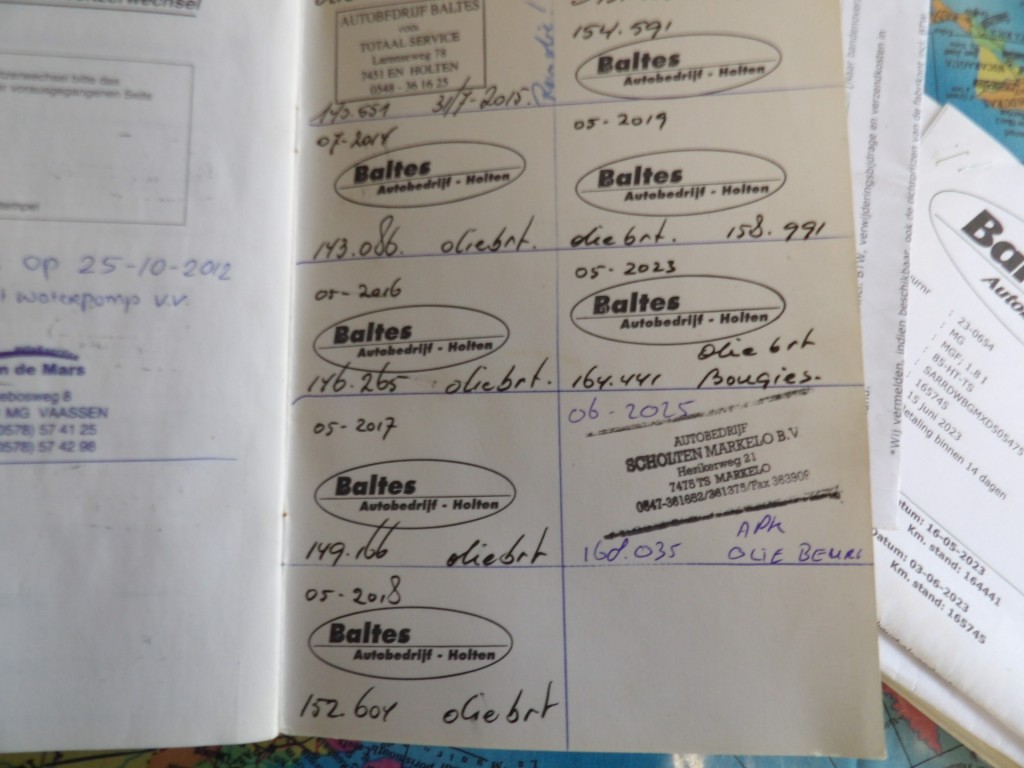 op 25-10-2012
waterpomp v.v.
de Mars
ebosweg 8
MG VAASSEN
0578) 57 41 25
0578) 57 42 96
AUTOBEDRIJF BALTES
voor
TOTAAL SERVICE
Larenseweg 79
7451 EN HOLTEN
0548 - 36 16 25
31/7-2015.
07-2014
Baltes
Autobedrijf - Holten
143.086. oliebrt.
05-2016
Baltes
Autobedrijf - Holten
146.265 oliebrt.
05-2017
Baltes
Autobedrijf - Holten
149.166 oliebrt
05-2018
Baltes
Autobedrijf - Holten
152.604 oliebrt
154.591
Baltes
Autobedrijf - Holten
05-2019
Baltes
Autobedrijf - Holten
oliebrt. 158.991
05-2023
Baltes
Autobedrijf - Holten
Olie brt
164.441 Bougies.
06-2025
AUTOBEDRIJF
SCHOLTEN MARKELO B.V.
Herikerweg 21
7475 TS MARKELO
0547-361682/361375/Fax 363909
APK
168.035 OLIE BEURT
Ba
Auto
urnr
: 23-0654
: MG
: MGF; 1.8 I
: 85-HT-TS
: SARRDWBGMXD505475
: 165745
: 15 juni 2023
Betaling binnen 14 dagen
atum: 16-05-2023
Km. stand: 164441
Datum: 03-06-2023
Km. stand: 165745
BTW, verwijderingsbijdrage en verzendkosten in
*Wij vermelden, indien beschikbaar, ook de adviesprijzen van de fabrikant